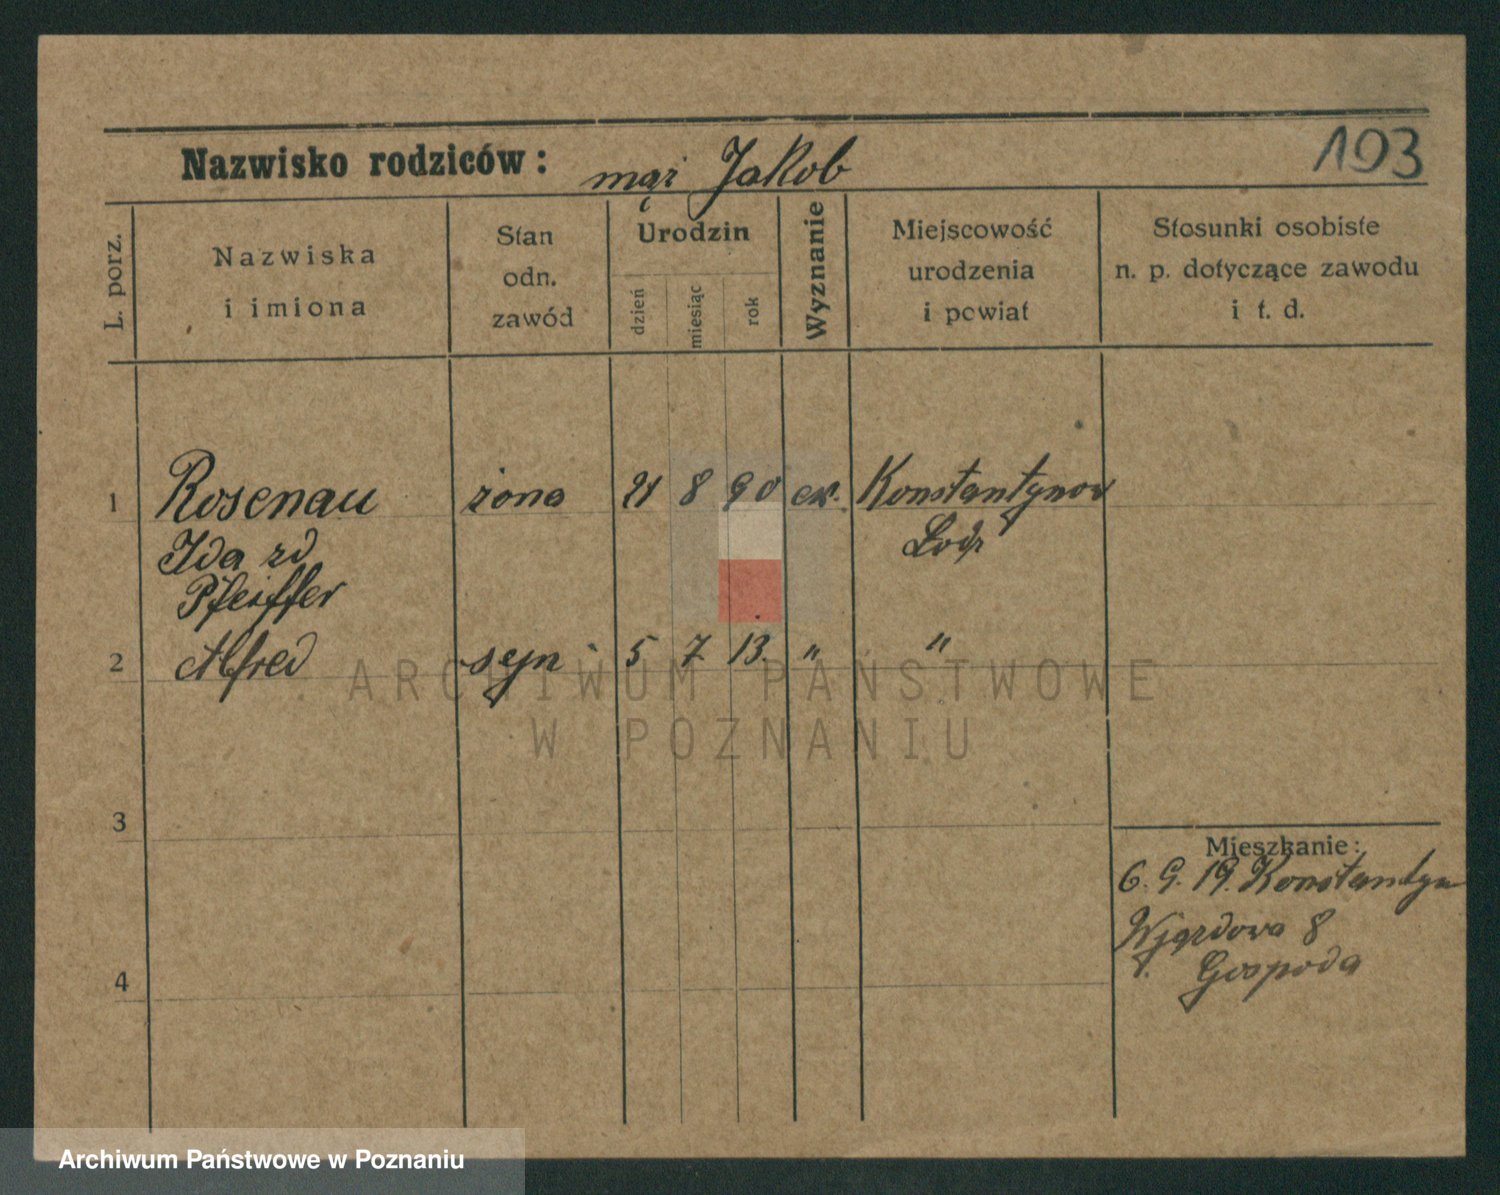 Nazwisko rodziców: mąż Jakob
193
L. porz.
Nazwiska
i imiona
Stan
odn.
zawód
Urodzin
dzień
miesiąc
rok
Wyznanie
Miejscowość
urodzenia
i powiat
Stosunki osobiste
n. p. dotyczące zawodu
i t. d.
1 Rosenau żona 21 8 90 ew. Konstantynow
Ida zd Łodz
Pfeiffer
2 Alfred syn 5 7 13 " "
3
4
Mieszkanie:
6. 9. 19. Konstantyn
8
Gospoda
ARCHIWUM PAŃSTWOWE
W POZNANIU
Archiwum Państwowe w Poznaniu